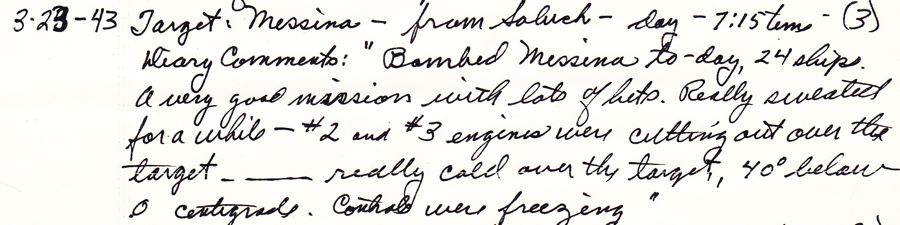 3-23-43 Target: Messina - from Soluch - day - 7:15 time - (3)
Diary Comments: "Bombed Messina to-day, 24 ships.
A very good mission with lots of hits. Really sweated
for a while - #2 and #3 engines were cutting out over the
target - ____ really cold over the target, 40° below
0 centigrade. Controls were freezing"